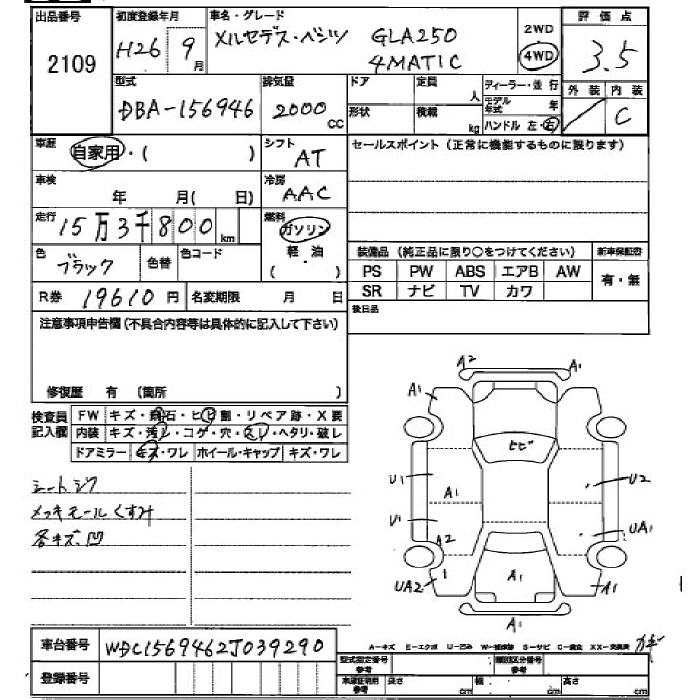 出品番号 初度登録年月 車名・グレード 2WD 評価点
2109 H26 9月 メルセデス・ベンツ GLA250 4MATIC 4WD 3.5
型式 排気量 ドア 定員 人 ディーラー・並行 外装 内装
DBA-156946 2000cc 形状 積載 kg モデル年式 年 C
ハンドル 左・右
車歴 自家用・( ) シフト AT セールスポイント(正常に機能するものに限ります)
車検 年 月( 日) 冷房 AAC
走行 15万3千800km 燃料 ガソリン
軽・油
( )
色 ブラック 色替 色コード 装備品(純正品に限り○をつけてください) 新車保証書
PS PW ABS エアB AW 有・無
SR ナビ TV カワ
R券 19610円 名変期限 月 日 後日品
注意事項申告欄(不具合内容等は具体的に記入して下さい)
修復歴 有 (箇所 )
検査員記入欄 FW キズ・飛石・ヒビ割・リペア跡・X要
内装 キズ・汚レ・コゲ・穴・スレ・ヘタリ・破レ
ドアミラー キズ・ワレ ホイール・キャップ キズ・ワレ
シートシワ
メッキモールくすみ
各キズ、凹
A2 A1
A1
ヒビ
U1 A1 U2
U1 A2 UA1
UA2 1 A1 A1
A1
車台番号 WDC1569462J039290
登録番号
A-キズ E-エクボ U-凹み W-補修跡 S-サビ C-腐食 XX-交換済
型式指定番号 参考 類別区分番号 参考
車庫証明用 参考 長さ cm 幅 cm 高さ cm